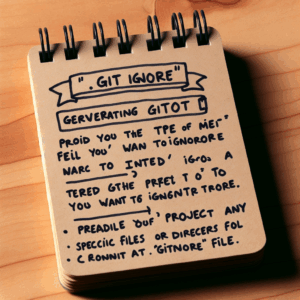 ". GIT IGNORE"
GERVERATING GITOT
PROID YOU THE TPE OF MEr"
FEIL YOU' WAN TOIGNORORE
NARC TO INTED' IGrO A
TERED GTHE PRFET TO' TO
YOU WANT T6 IGNGNTR TRORE.
• PREADILE 'OUF' PROJECT ANY
• SPECCIC FILES OR DIRECERS FOL
• C RONNIT AT ."GITNORE" FILE.